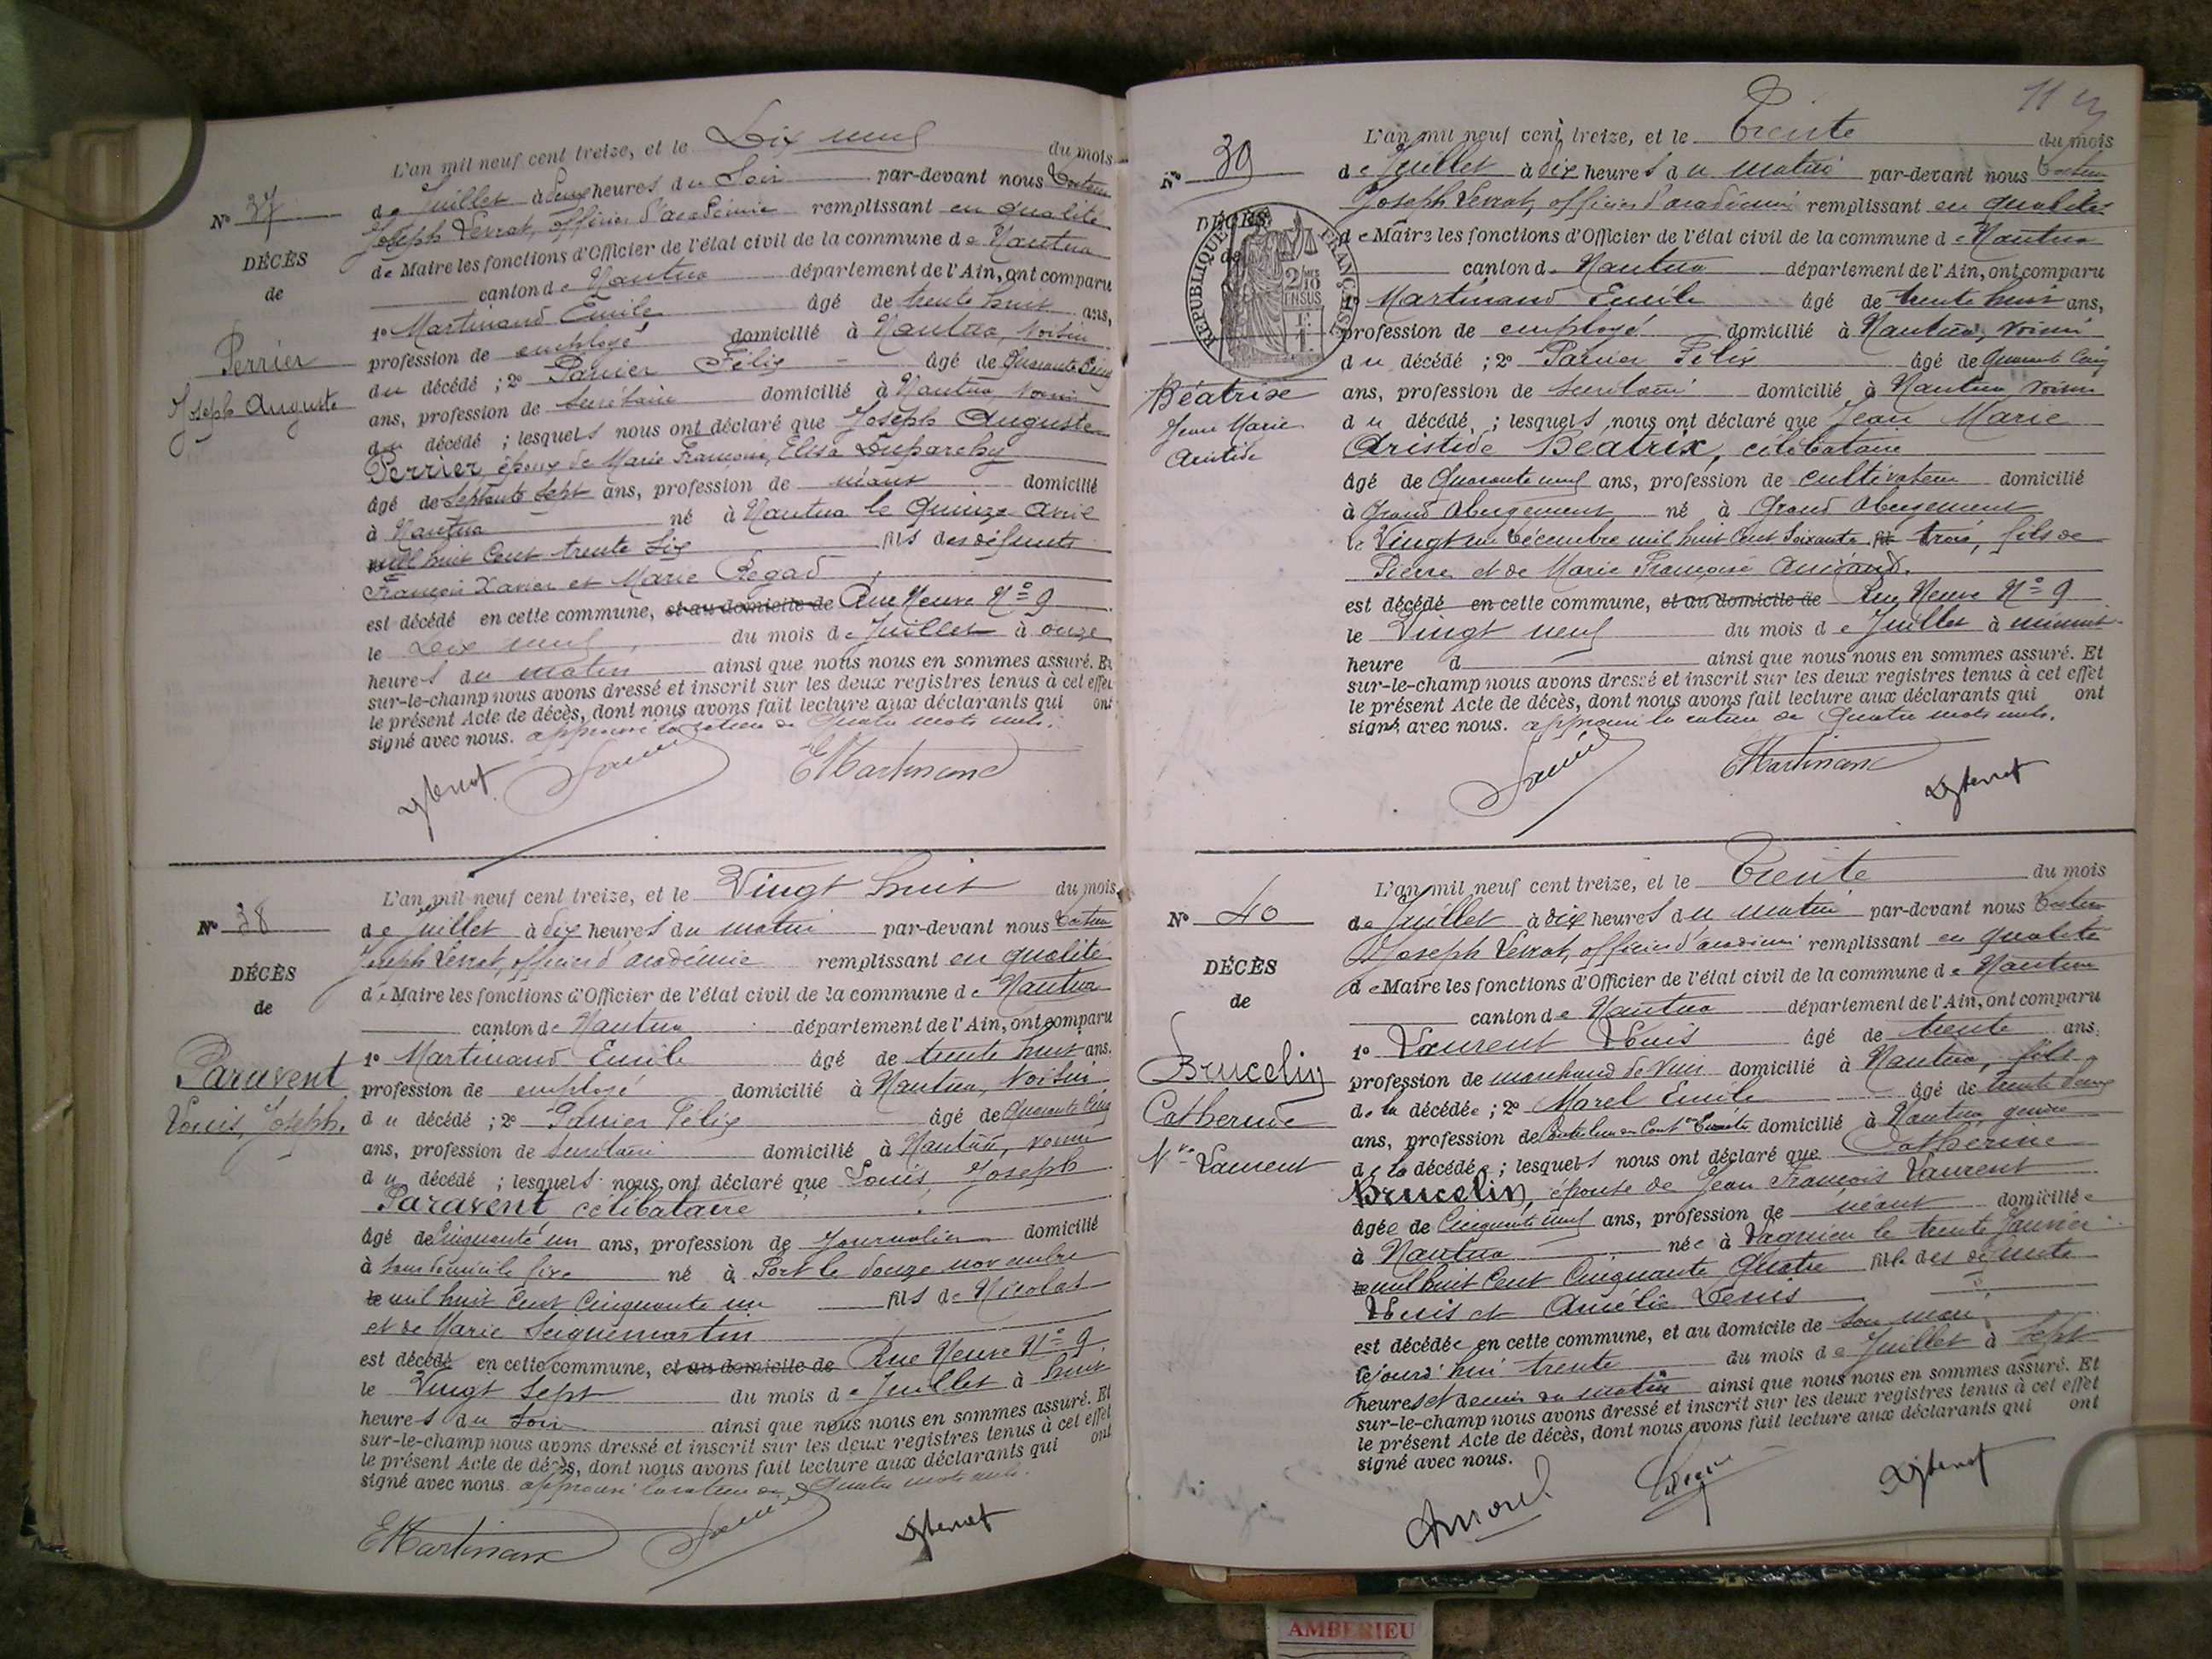 L'an mil neuf cent treize, et le Dix neuf du mois
de Juillet à deux heures du Soir par-devant nous Docteur
Joseph Levrat, officier d'académie remplissant en qualité
de Maire les fonctions d'Officier de l'état civil de la commune de Nantua
canton de Nantua département de l'Ain, ont comparu
1º Martinand Emile âgé de trente huit ans,
profession de employé domicilié à Nantua, voisin
du décédé ; 2º Panier Félix âgé de Quarante Cinq
ans, profession de Secrétaire domicilié à Nantua, voisin
du décédé ; lesquels nous ont déclaré que Joseph Auguste
Perrier, époux de Marie Françoise, Elisa Duparchy
âgé de Septante Sept ans, profession de néant domicilié
à Nantua né à Nantua le Quinze Avril
mil huit Cent trente Six fils des défunts
François Xavier et Marie Regad
est décédé en cette commune, et au domicile de Rue Neuve Nº 9
le Dix neuf du mois de Juillet à onze
heures du matin ainsi que nous nous en sommes assuré. Et
sur-le-champ nous avons dressé et inscrit sur les deux registres tenus à cet effet
le présent Acte de décès, dont nous avons fait lecture aux déclarants qui ont
signé avec nous. approuvé la rature de Quatre mots nuls.
EMartinand
Nº 37
DÉCÈS
de
Perrier
Joseph Auguste
L'an mil neuf cent treize, et le Vingt huit du mois
de Juillet à dix heures du matin par-devant nous Docteur
Joseph Levrat, officier d'académie remplissant en qualité
de Maire les fonctions d'Officier de l'état civil de la commune de Nantua
canton de Nantua département de l'Ain, ont comparu
1º Martinand Emile âgé de trente huit ans.
profession de employé domicilié à Nantua, Voisin
du décédé ; 2º Panier Félix âgé de Quarante Cinq
ans, profession de Secrétaire domicilié à Nantua, voisin
du décédé ; lesquels nous ont déclaré que Louis, Joseph
Paravent célibataire
âgé de Cinquante un ans, profession de Journalier domicilié
à Sans domicile fixe né à Port le douze novembre
le mil huit Cent Cinquante un fils de Nicolas
et de Marie Seignemartin
est décédé en cette commune, et au domicile de Rue Neuve Nº 9
le Vingt Sept du mois de Juillet à huit
heures du Soir ainsi que nous nous en sommes assuré. Et
sur-le-champ nous avons dressé et inscrit sur les deux registres tenus à cet effet
le présent Acte de décès, dont nous avons fait lecture aux déclarants qui ont
signé avec nous. approuvé la rature de Quatre mots nuls.
EMartinand
Nº 38
DÉCÈS
de
Paravent
Louis, Joseph.
L'an mil neuf cent treize, et le Trente du mois
de Juillet à dix heures du matin par-devant nous Docteur
Joseph Levrat, officier d'académie remplissant en qualité
de Maire les fonctions d'Officier de l'état civil de la commune de Nantua
canton de Nantua département de l'Ain, ont comparu
1º Martinand Emile âgé de trente huit ans,
profession de employé domicilié à Nantua, voisin
du décédé ; 2º Panier Félix âgé de Quarante Cinq
ans, profession de Secrétaire domicilié à Nantua voisin
du décédé, ; lesquels nous ont déclaré que Jean Marie
Aristide Béatrix, célibataire
âgé de Quarante neuf ans, profession de cultivateur domicilié
à Grand Abergement né à Grand Abergement
le Vingt un Décembre mil huit Cent Soixante trois, fils de
Pierre et de Marie Françoise
est décédé en cette commune, et au domicile de Rue Neuve Nº 9
le Vingt neuf du mois de Juillet à minuit
heure d ainsi que nous nous en sommes assuré. Et
sur-le-champ nous avons dressé et inscrit sur les deux registres tenus à cet effet
le présent Acte de décès, dont nous avons fait lecture aux déclarants qui ont
signé, avec nous. approuvé la rature de Quatre mots nuls.
EMartinand
Nº 39
DÉCÈS
de
REPUBLIQUE FRANÇAISE
2/10 EN SUS
Béatrix
Jean Marie
Aristide
L'an mil neuf cent treize, et le Trente du mois
de Juillet à dix heures du matin par-devant nous Docteur
Joseph Levrat, officier d'académie remplissant en qualité
de Maire les fonctions d'Officier de l'état civil de la commune de Nantua
canton de Nantua département de l'Ain, ont comparu
1º Laurent Louis âgé de trente ans,
profession de marchand de Vins domicilié à Nantua, fils
de la décédée ; 2º Morel Emile âgé de trente deux
ans, profession de domicilié à Nantua, gendre
de la décédée ; lesquels nous ont déclaré que Catherine
Brucelin, épouse de Jean François Laurent
âgée de Cinquante neuf ans, profession de néant domiciliée
à Nantua née à Lagnieu le trente Janvier
le mil huit Cent Cinquante Quatre fille des défunts
Louis et Amélie Denis
est décédée en cette commune, et au domicile de Son mari
le jourd'hui trente du mois de Juillet à Sept
heures et demie du matin ainsi que nous nous en sommes assuré. Et
sur-le-champ nous avons dressé et inscrit sur les deux registres tenus à cet effet
le présent Acte de décès, dont nous avons fait lecture aux déclarants qui ont
signé avec nous.
Nº 40
DÉCÈS
de
Brucelin
Catherine
Laurent
AMBERIEU